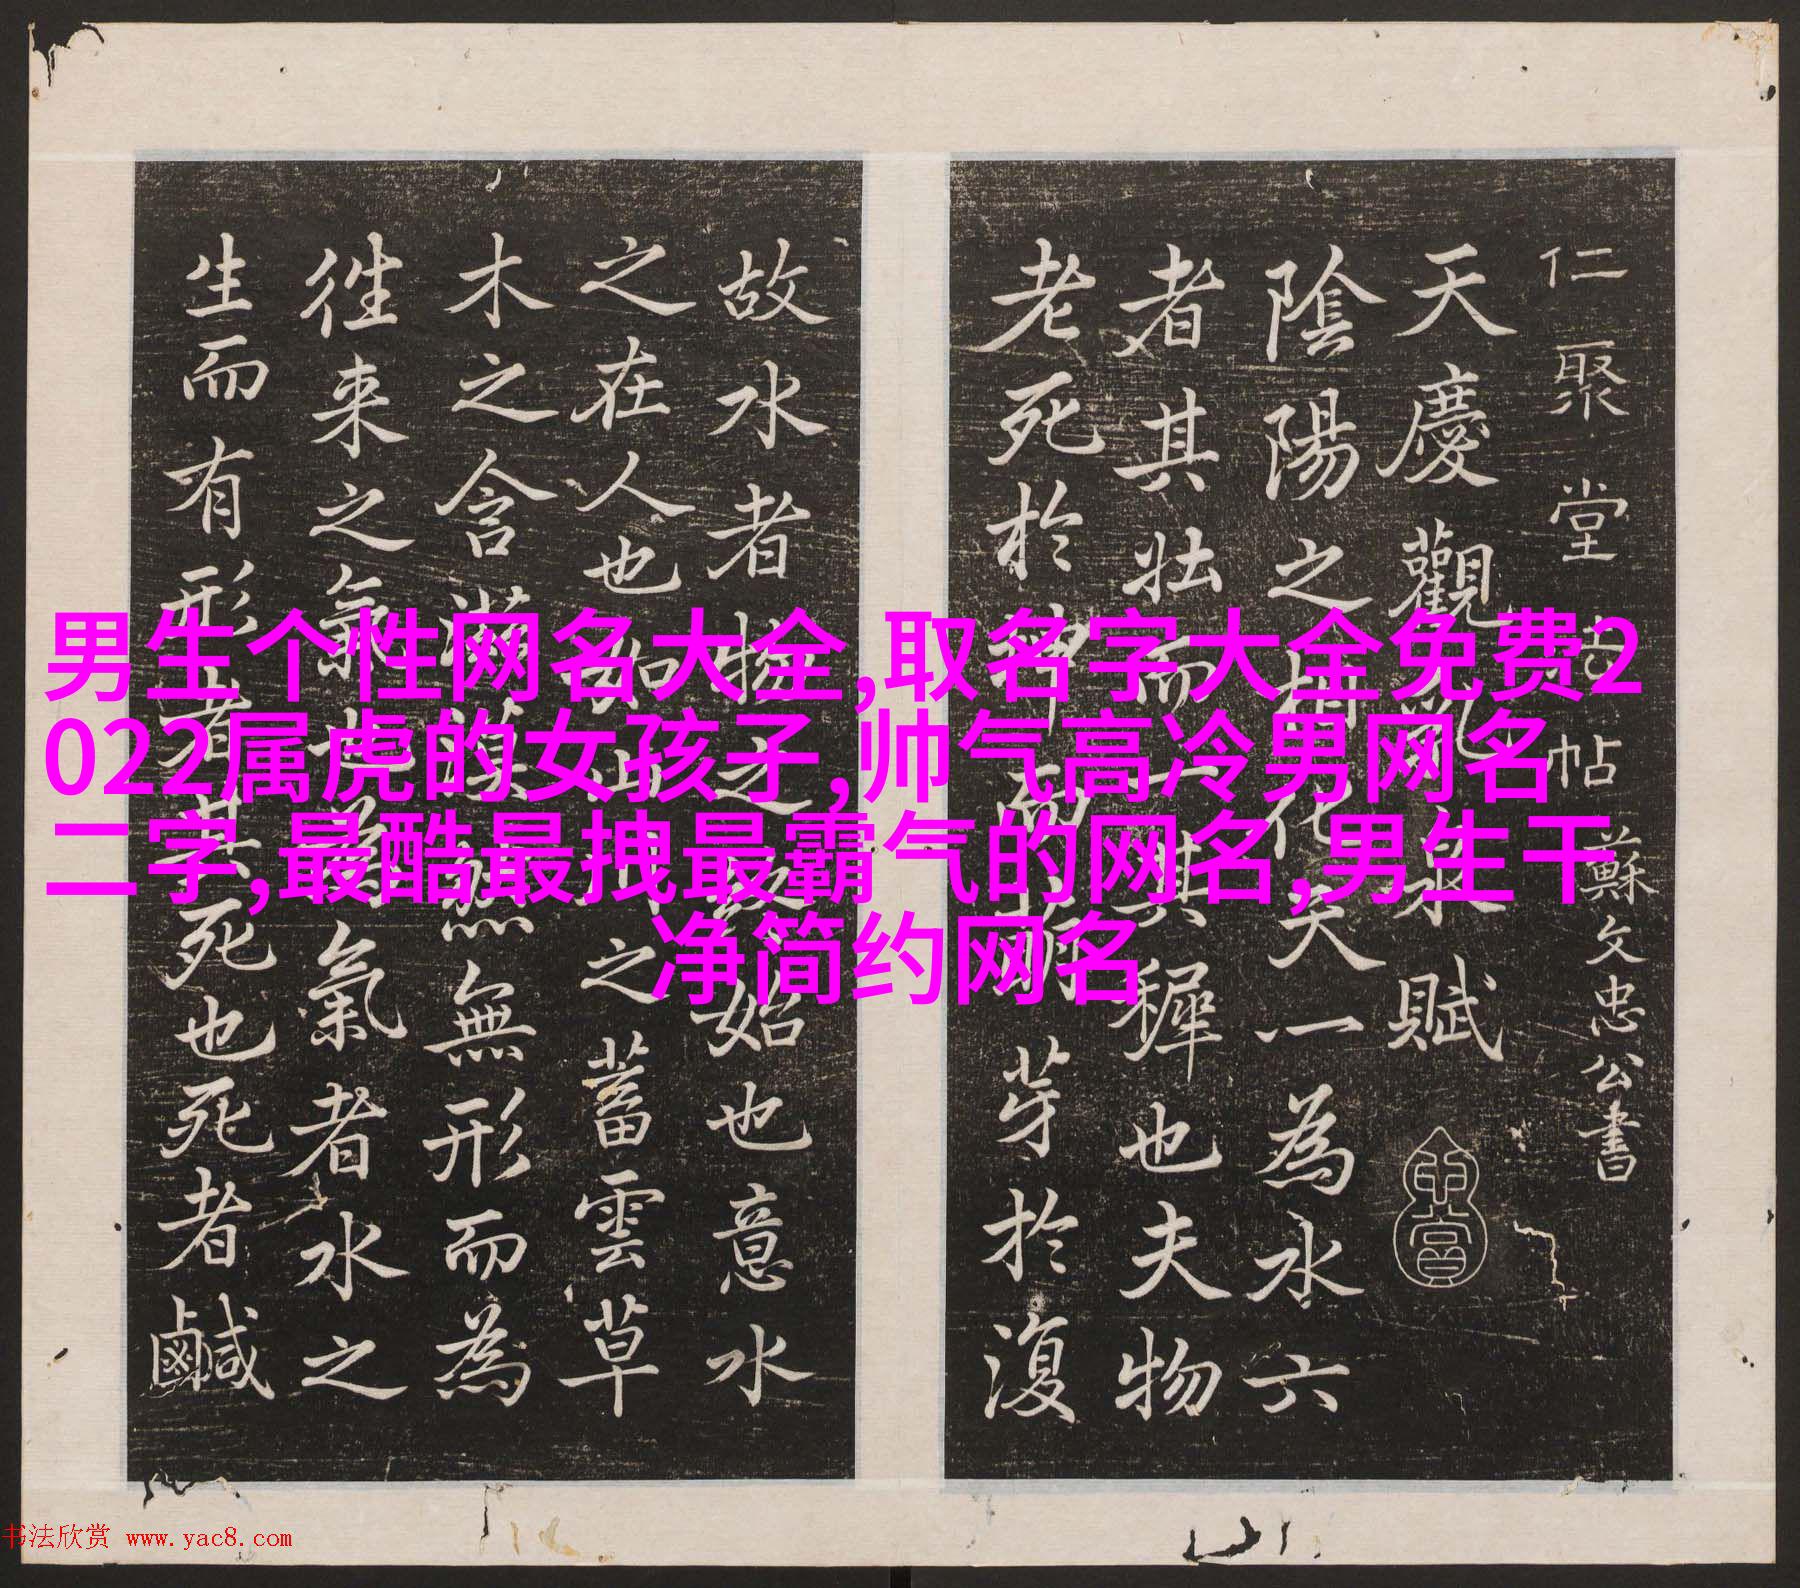 男生个性网名大全,取名字大全免费2
022属虎的女孩子,帅气高冷男网名
二字,最酷最拽最霸气的网名,男生干
净简约网名
仁聚堂法帖 蘇文忠公書
天慶觀乳泉賦
陰陽之相化天一為水六
者其壯而一其穉也夫物
老死於坤而萌芽於復
故水者物之終始也意水
之在人也如山川之蓄雲草
木之含滋漠然無形而為
徃来之氣也為氣者水之
生而有形者其死也死者鹹
书法欣赏 www.yac8.com